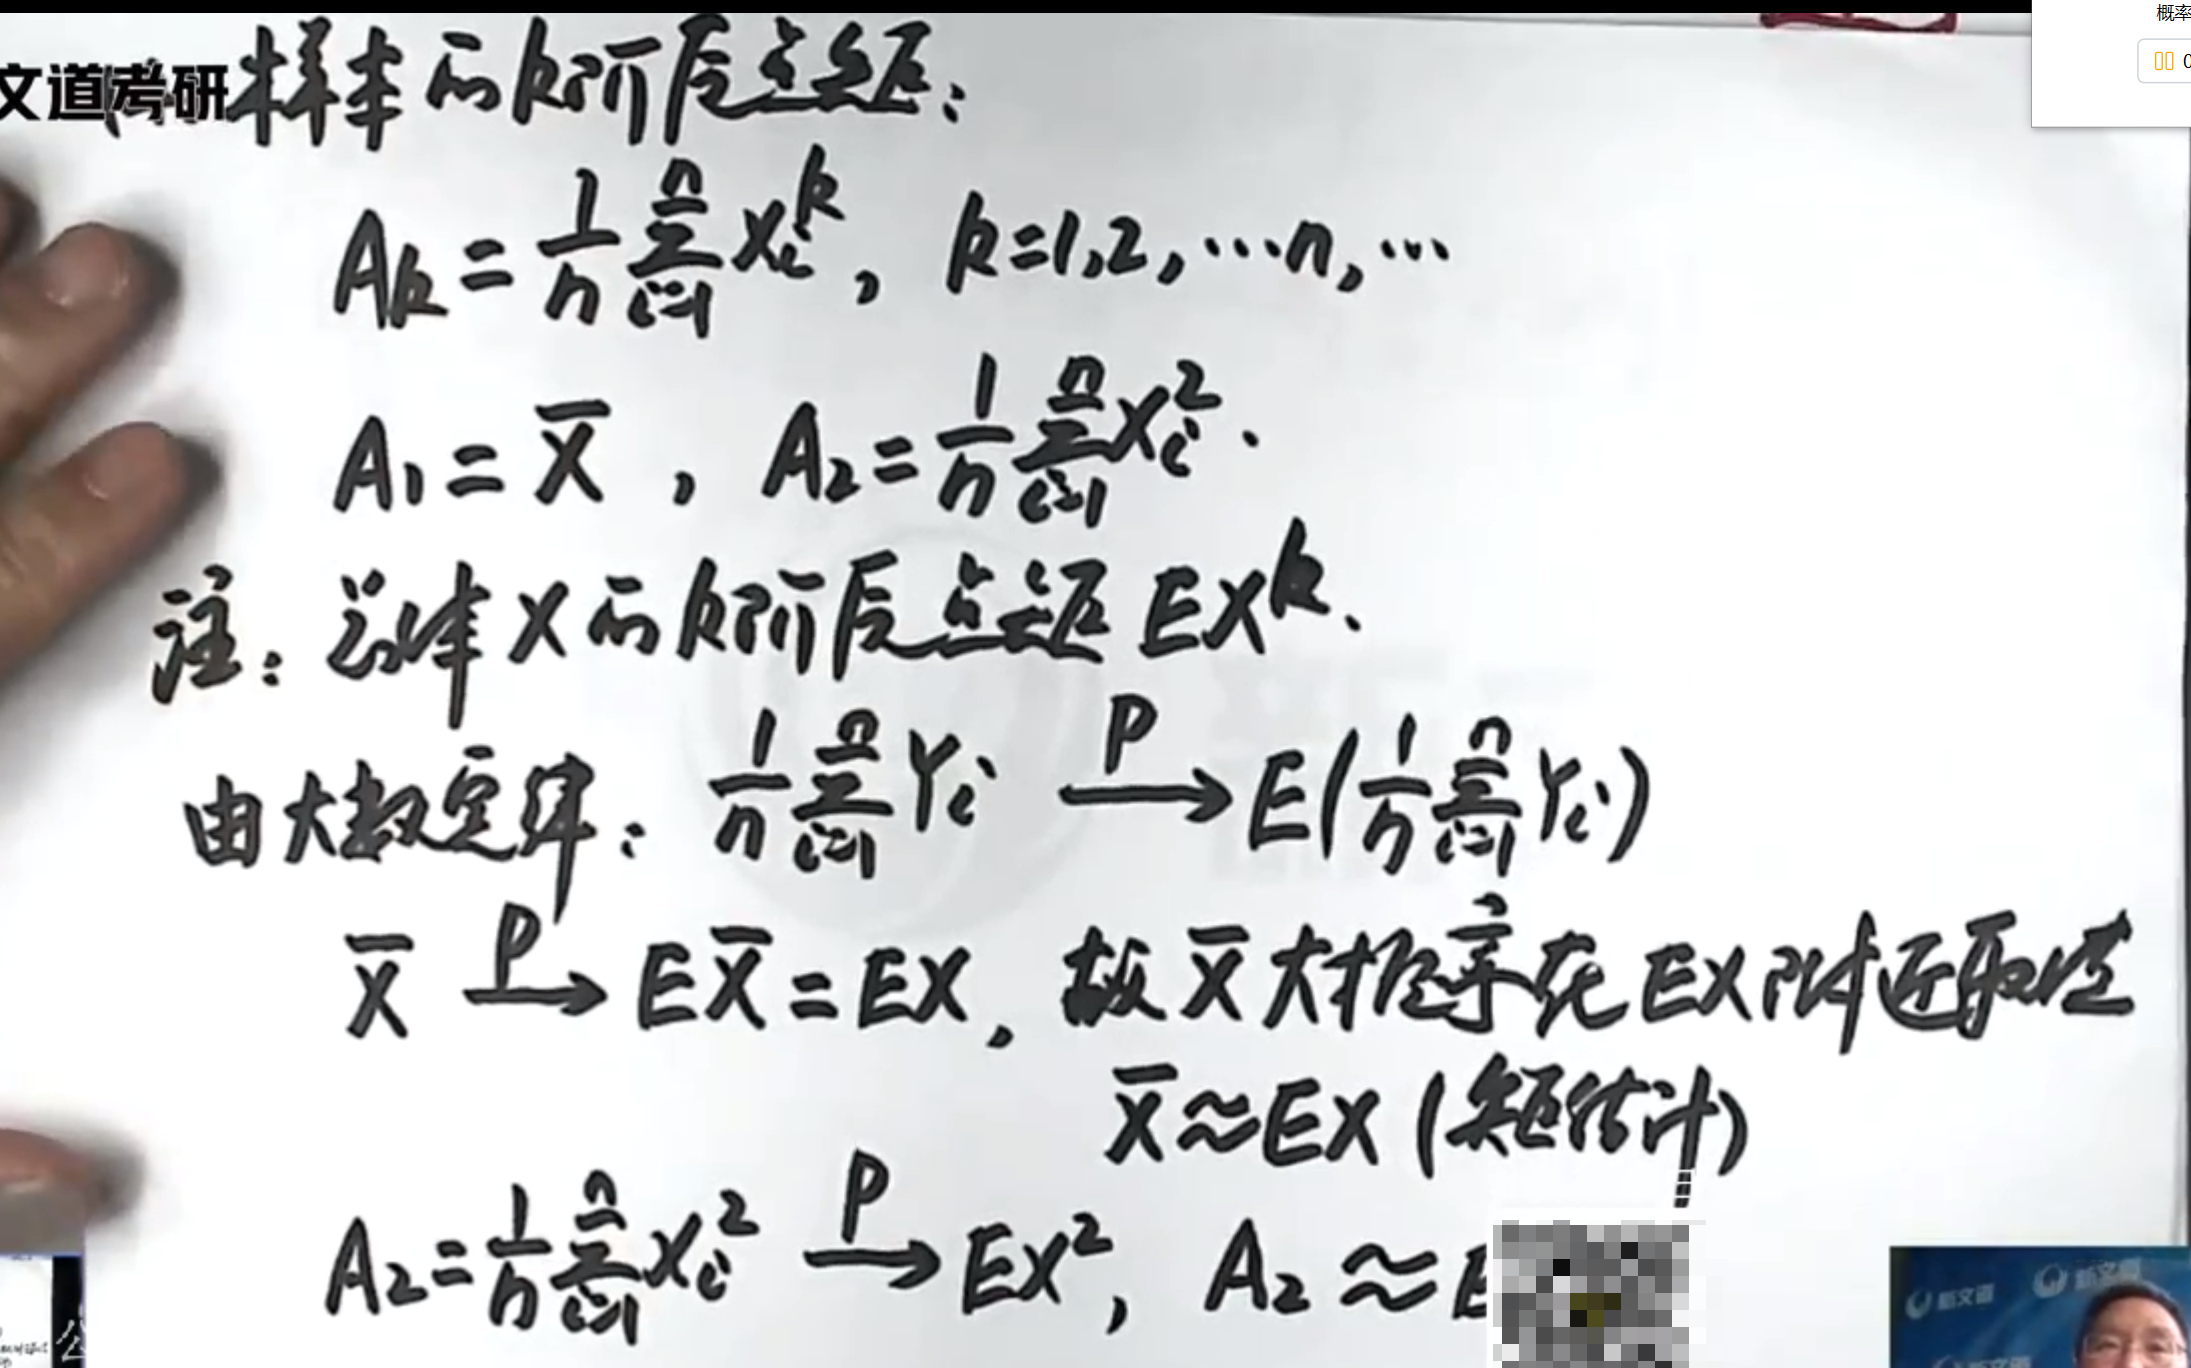 概率
0
文道考研
样本的k阶原点矩:
Ak = 1/n ∑_{i=1}^{n} Xi^k, k=1,2,…n,…
A1 = X̄, A2 = 1/n ∑_{i=1}^{n} Xi^2.
注: 总体X的k阶原点矩 EX^k.
由大数定律: 1/n ∑_{i=1}^{n} Yi —P→ E(1/n ∑_{i=1}^{n} Yi)
X̄ —P→ EX̄ = EX, 故X̄大概率在EX附近取值
X̄ ≈ EX (矩估计)
A2 = 1/n ∑_{i=1}^{n} Xi^2 —P→ EX^2, A2 ≈ E
新文道 新文道